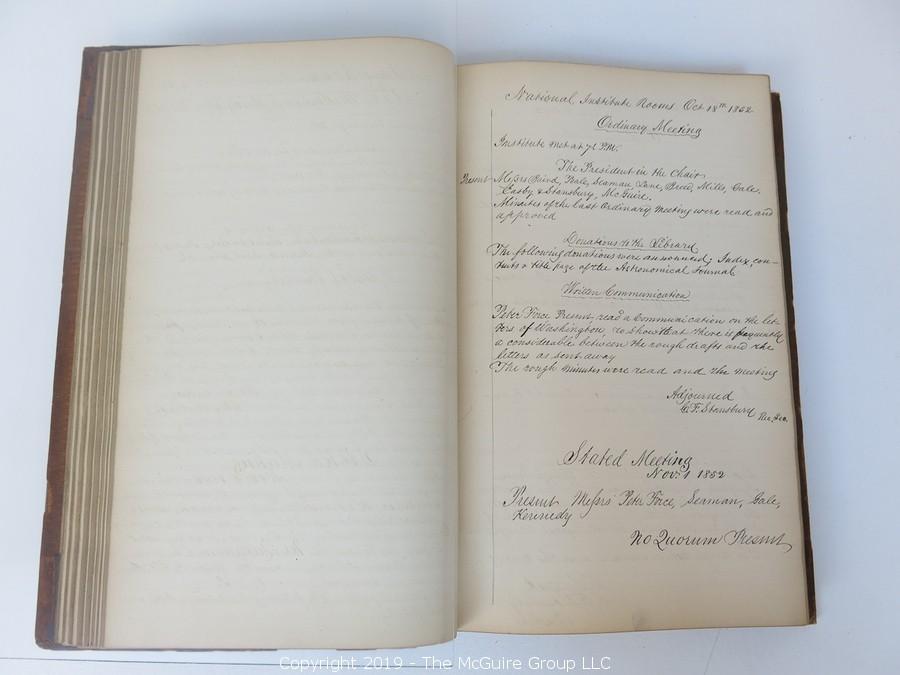 National Institute Rooms Oct 18th 1852
Ordinary Meeting
Institute met at 7½ P.M.
The President in the Chair
Present Messrs Baird, Hale, Seaman, Lane, Breed, Mills, Gale,
Easby & Stansbury, McGuire.
Minutes of the last Ordinary meeting were read and
approved
Donations to the Library
The following donations were announced; Index, con-
tents & title page of the Astronomical Journal
Written Communication
Peter Force Present, read a Communication on the let-
ters of Washington to show that there is frequently
a considerable between the rough drafts and the
letters as sent away
The rough minutes were read and the meeting
Adjourned
C. F. Stansbury Rec. Sec.
Stated Meeting
Nov. 1 1852
Present Messrs Peter Force, Seaman, Gale,
Kennedy
No Quorum Present
Copyright 2019 - The McGuire Group LLC